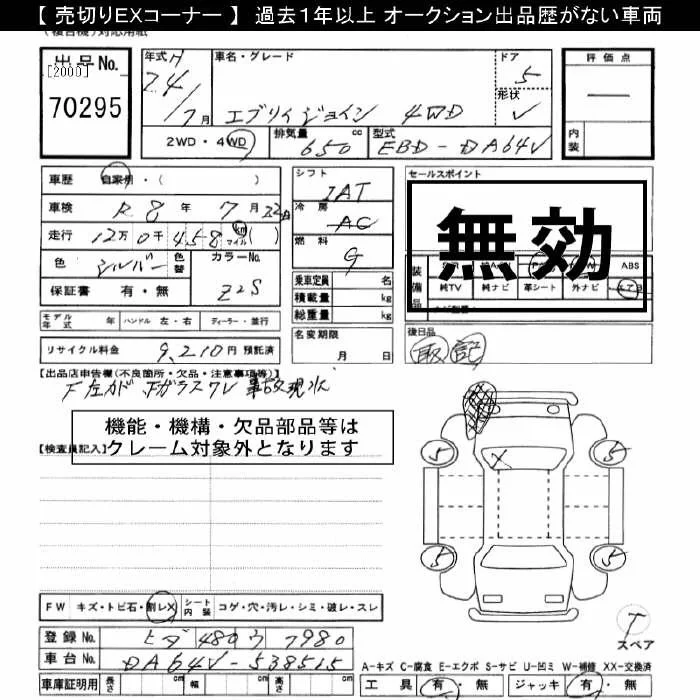 【 売切りEXコーナー 】 過去1年以上 オークション出品歴がない車両
出品No.
[2000]
70295
年式 H
24/7月
車名・グレード
エブリィジョイン 4WD
ドア
5
形状
V
評価点
内装
2WD・4WD
排気量 650 cc
型式 EBD-DA64V
車歴 自家用・( )
車検 R8年 7月 22日
走行 12万0千458 km マイル ( )
色 シルバー 色替
カラーNo. Z2S
保証書 有・無
シフト
IAT
冷房
AC
燃料
G
乗車定員 名
積載量 kg
総重量 kg
セールスポイント
無効
装備品
ABS
純TV 純ナビ 革シート 外ナビ エアB
モデル年式 年 ハンドル 左・右 ディーラー・並行
リサイクル料金 9,210円 預託済
名変期限
月 日
後日品
取 記
【出品店申告欄(不良箇所・欠品・注意事項等)】
F左カド、Fガラスワレ 事故現状
機能・機構・欠品部品等は
クレーム対象外となります
【検査員記入】
X
5 5
5 5
FW キズ・トビ石・割レX シート内装 コゲ・穴・汚レ・シミ・破レ・スレ
T
スペア
登録No. 480 ウ 7980
車台No. DA64V-538515
A-キズ C-腐食 E-エクボ S-サビ U-凹ミ W-補修 XX-交換済
車庫証明用 長さ cm 幅 cm 高さ cm
工具 有・無 ジャッキ 有・無